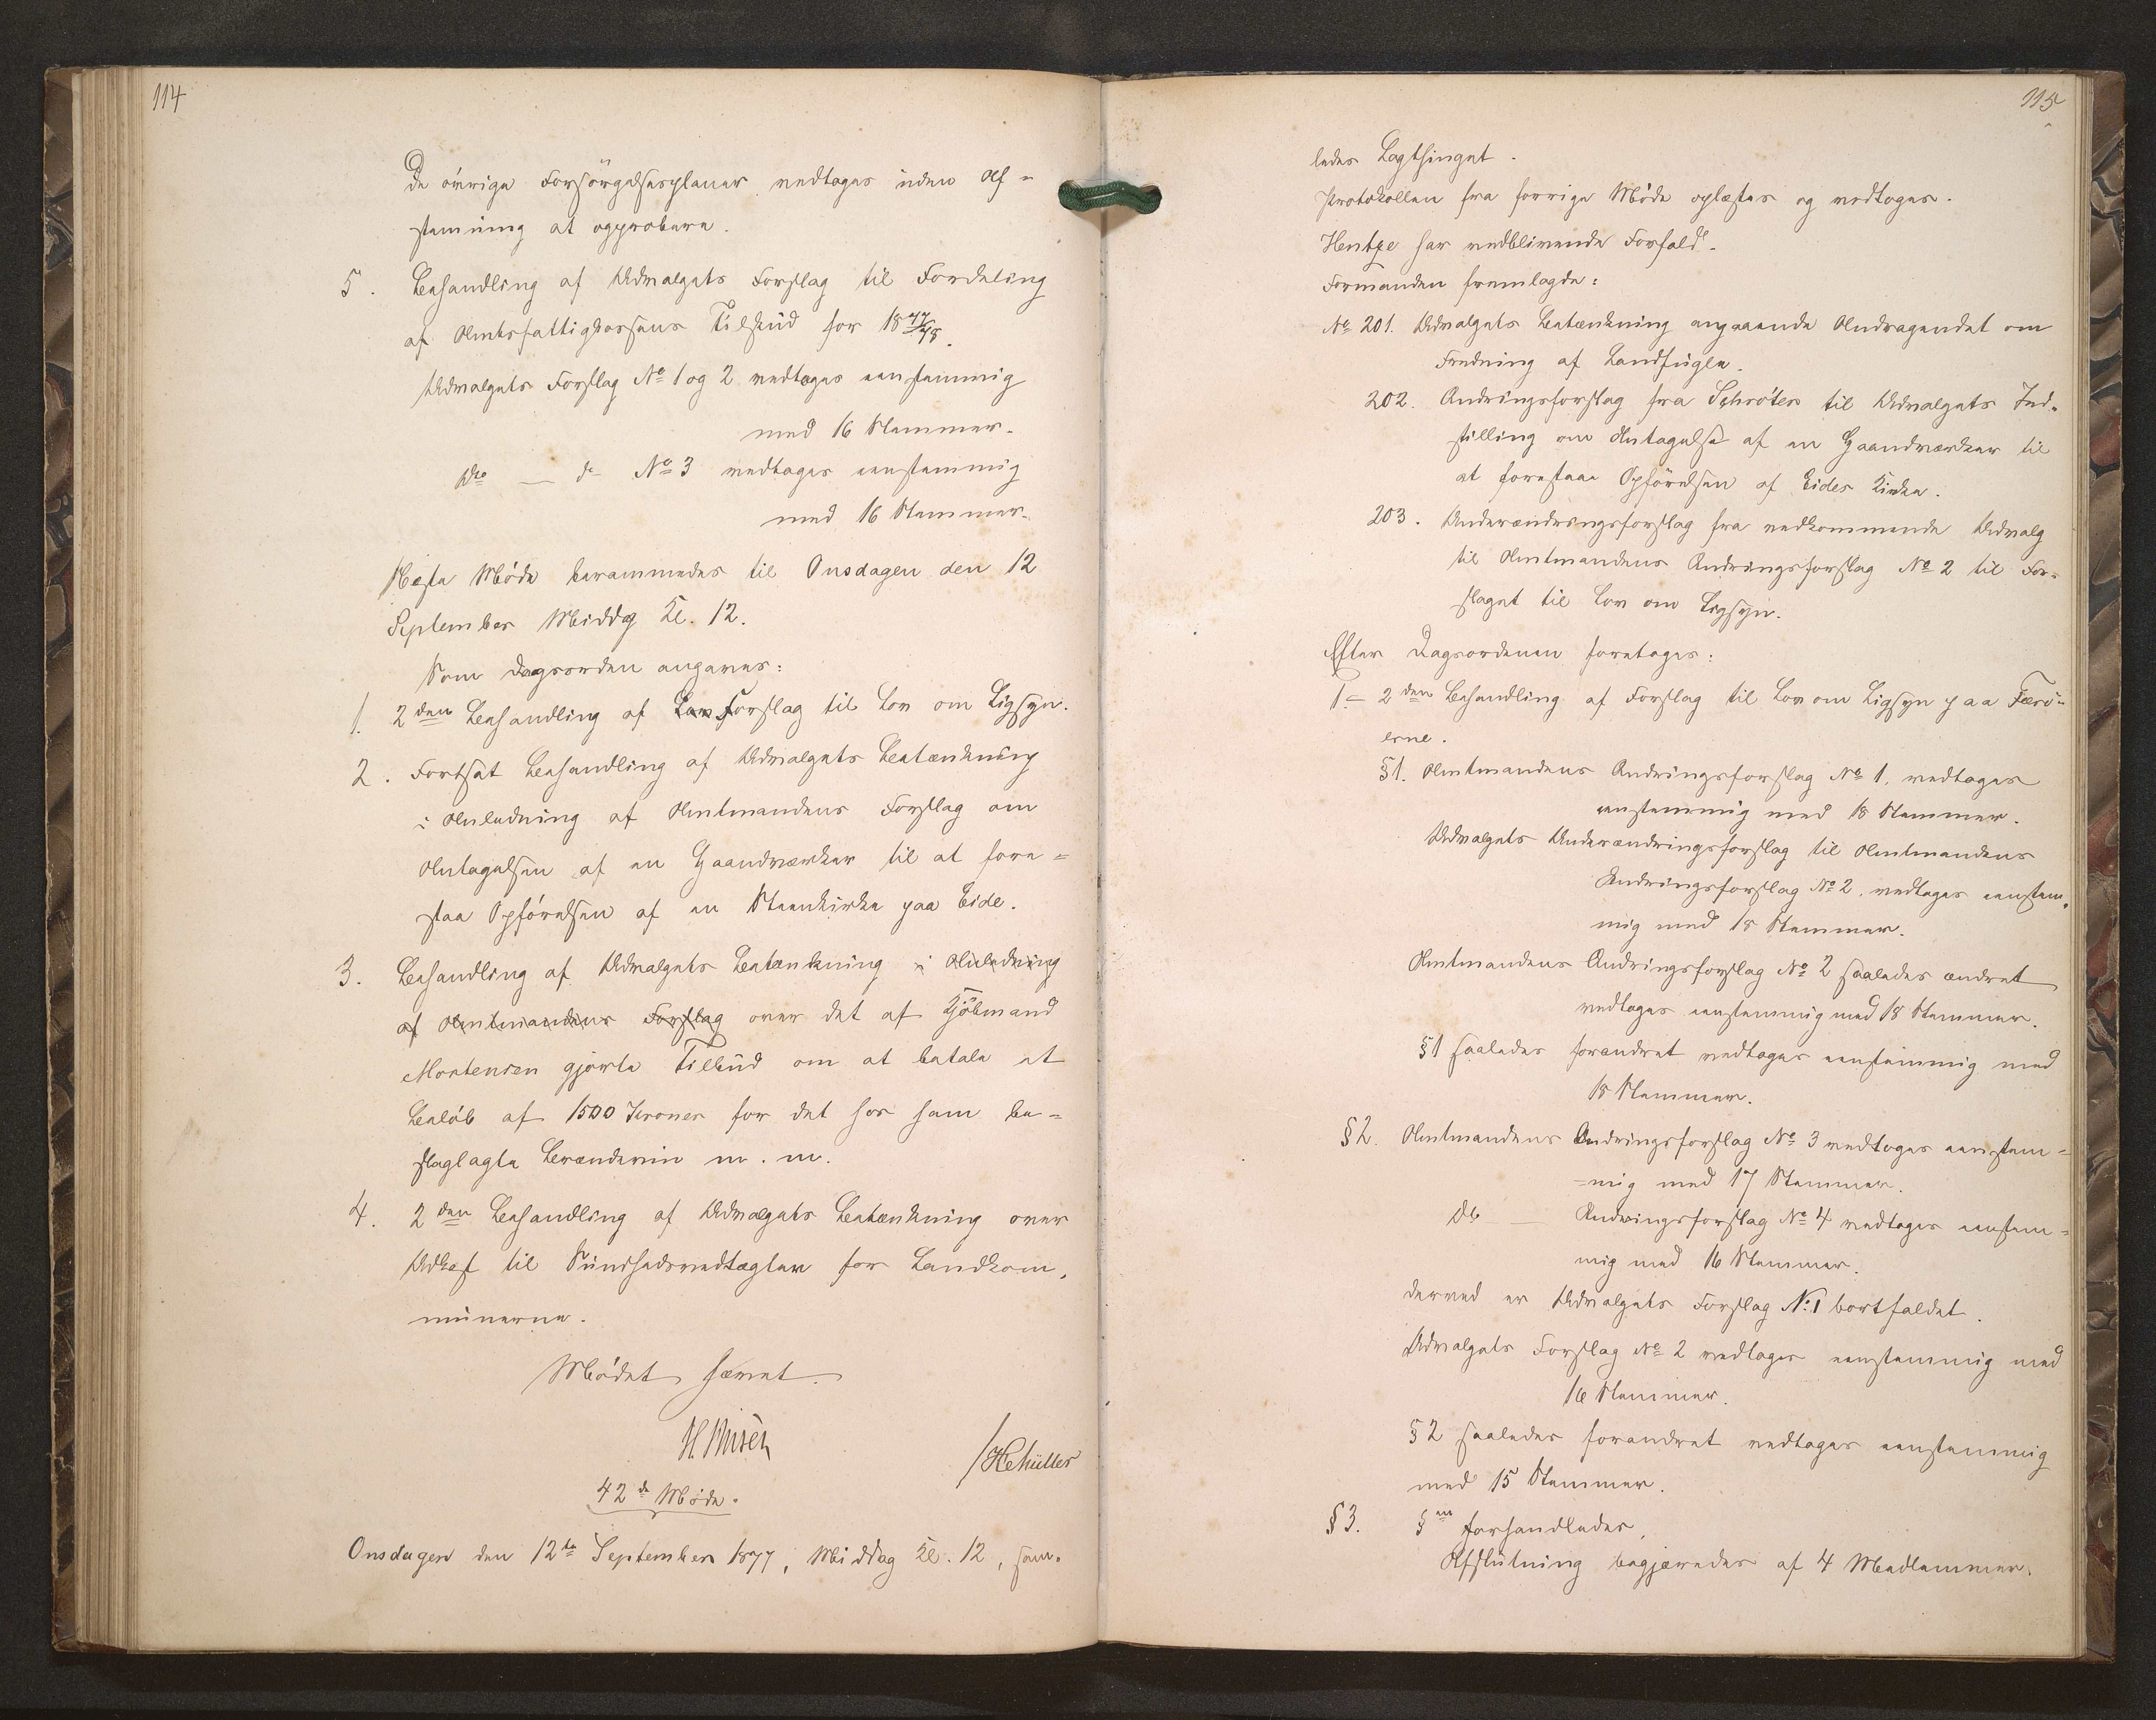 114
De övrige Forsörgelsesplaner vedtoges uden Af-
stemning at approbere.
5. Behandling af Udvalgets Forslag til Fordeling
af Amtsfattigkassens Tilskud for 18 77/78.
Udvalgets Forslag No 1 og 2 vedtoges eenstemmig
med 16 Stemmer.
Do — do No 3 vedtoges eenstemmig
med 16 Stemmer.
Næste Möde berammedes til Onsdagen den 12
September Middg Kl. 12.
Som Dagsorden angaves:
1. 2den Behandling af Lov Forslag til Lov om Ligsyn.
2. Fortsat Behandling af Udvalgets Betænkning
i Anledning af Amtmandens Forslag om
Antagelsen af en Haandværker til at fore=
staa Opförelsen af en Steenkirke paa Eide.
3. Behandling af Udvalgets Betænkning i Anledning
af Amtmandens Forslag over det af Kjöbmand
Mortensen gjorte Tilbud om at betale et
Belöb af 1500 Kroner for det hos ham be=
slaglagte Brændeviin m. m.
4. 2den Behandling af Udvalgets Betænkning over
Udkast til Sundhedsvedtægter for Landkom,
munerne.
Mödet hævet.
H. Müller
42de Möde.
Onsdagen den 12te September 1877, Middag Kl. 12, sam-
115
ledes Lagthinget.
Protokollen fra forrige Möde oplæstes og vedtoges.
Hentze har vedblivende Forfald.
Formanden fremlagde:
No 201. Udvalgets Betænkning angaaende Andragendet om
Fredning af Landfugle.
202. Ændringsforslag fra Schröter til Udvalgets Ind-
stilling om Antagelse af en Haandværker til
at forestaae Opförelsen af Eides Kirke.
203. Underændringsforslag fra vedkommende Udvalg
til Amtmandens Ændringsforslag No 2 til For=
slaget til Lov om Ligsyn.
Efter Dagsordenen foretoges:
1= 2den Behandling af Forslag til Lov om Ligsyn paa Færö-
erne.
§1. Amtmandens Ændringsforslag No 1. vedtoges
eenstemmig med 18 Stemmer.
Udvalgets Underændringsforslag til Amtmandens
Ændringsforslag No 2. vedtoges eenstem,
mig med 18 Stemmer.
Amtmandens Ændringsforslag No 2 saaledes ændret
vedtoges eenstemmig med 18 Stemmer.
§1 saaledes forandret vedtoges eenstemmig med
18 Stemmer.
§2. Amtmandens Ændringsforslag No 3 vedtoges eenstem=
=mig med 17 Stemmer.
Do — Ændringsforslag No 4 vedtoges eenstem=
mig med 16 Stemmer.
derved er Udvalgets Forslag No 1 bortfaldet.
Udvalgets Forslag No 2 vedtoges eenstemmig med
16 Stemmer.
§2 saaledes forandret vedtoges eenstemmig
med 15 Stemmer.
§3. §en forhandledes.
Afslutning begjæredes af 4 Medlemmer.